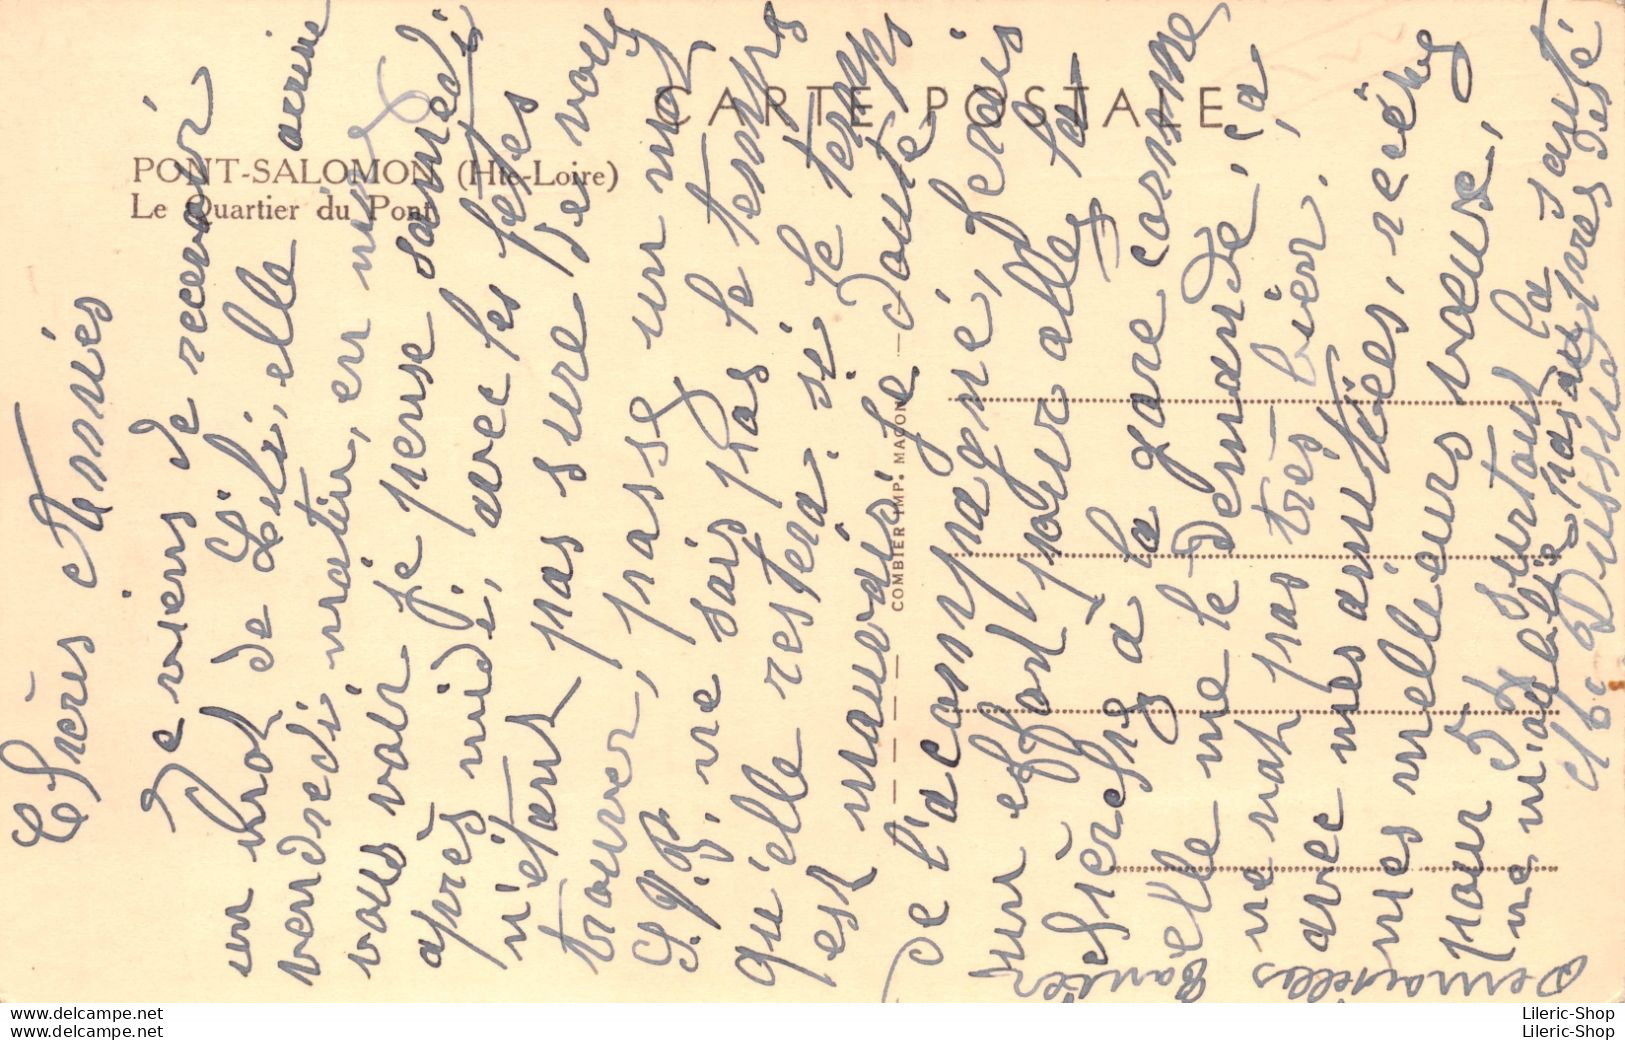 CARTE POSTALE
PONT-SALOMON (Hte-Loire)
Le Quartier du Pont
COMBIER IMP. MACON
Chères Amies
Je viens de recevoir
un mot de Lili, elle arrive
vendredi matin, en
vous voir je pense samedi
après midi, avec les fêtes
n'étant pas sure de vous
trouver, passez un mot
S.V.P. ne sais pas le temps
qu'elle restera. si le temps
est mauvais. je doute
de l'acompagné, ferais
un effort pour allez la
cherchez à la gare comme
elle me le demande, ça
ne vat pas très bien.
avec mes amitiées, recévez
mes meilleurs vœux,
pour 59 surtout la santé
ne m'oubliè pas auprès des
Demoiselles